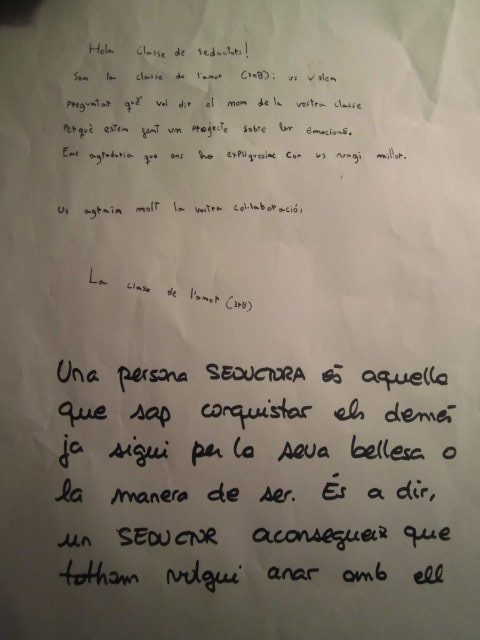 Hola classe de seductors!
Som la classe de l'amor (3rB); us volem
preguntar què vol dir el nom de la vostra classe
Perquè estem fent un projecte sobre les emocions.
Ens agradaria que ens ho expliquessiu com us vagi millor.
Us agraïm molt la vostra col·laboració,
La classe de l'amor (3rB)
Una persona SEDUCTORA és aquella
que sap conquistar els demés
ja sigui per la seva bellesa o
la manera de ser. És a dir,
un SEDUCTOR aconsegueix que
tothom vulgui anar amb ell